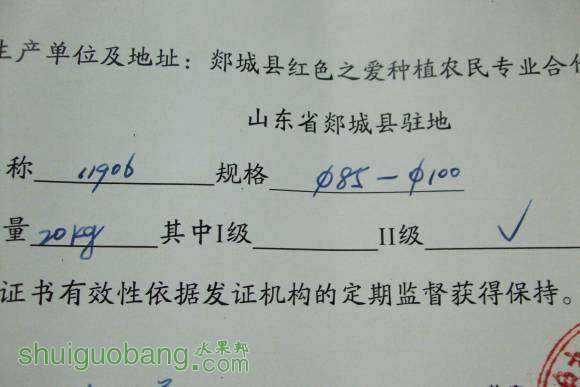 生产单位及地址：郯城县红色之爱种植农民专业合作
山东省郯城县驻地
称 11906 规格 φ85－φ100
量 20kg 其中I级 II级 ✓
证书有效性依据发证机构的定期监督获得保持。
水果邦
shuiguobang.com